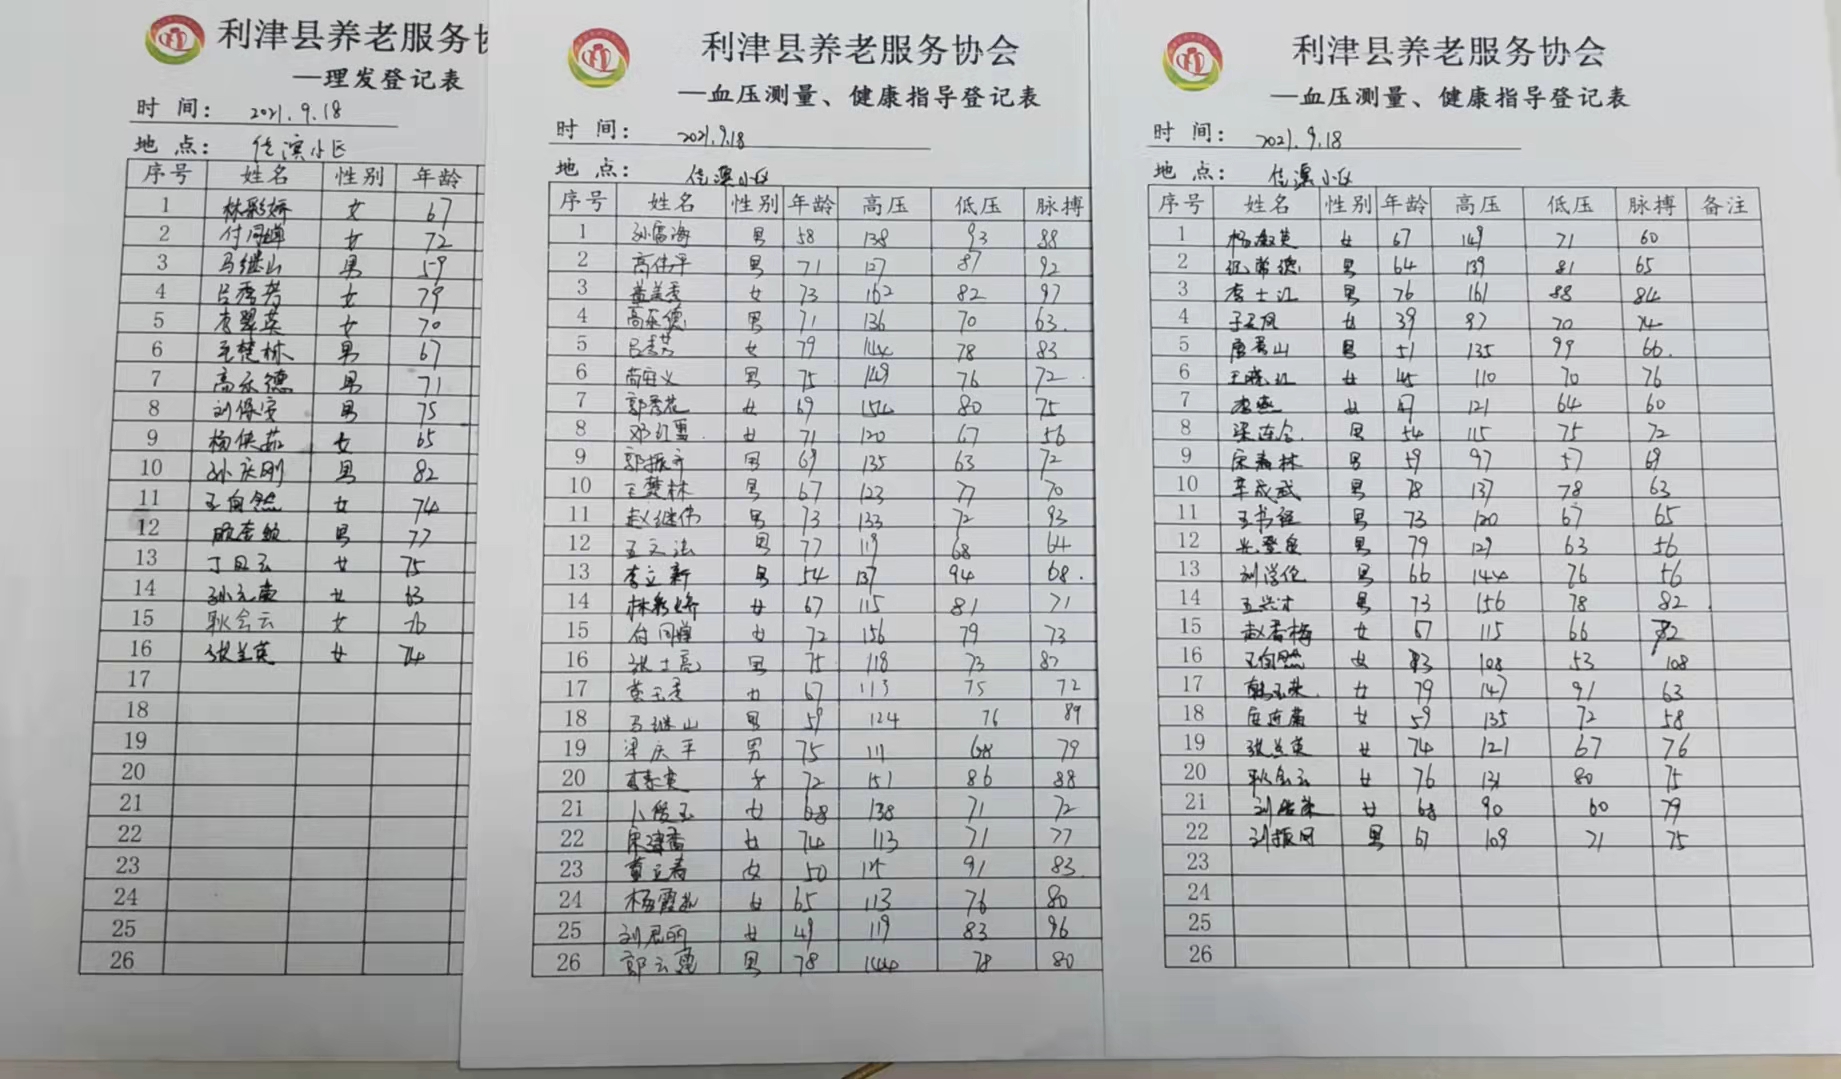 利津县养老服务协
—理发登记表
时 间： 2021.9.18
地 点： 佳滨小区
序号 姓名 性别 年龄
1 林彩娇 女 67
2 付同婵 女 72
3 马继山 男 59
4 吕秀芳 女 79
5 李翠英 女 70
6 王楚林 男 67
7 高乐德 男 71
8 刘保安 男 75
9 杨侠茹 女 65
10 孙庆刚 男 82
11 王自然 女 74
12 男 77
13 丁 云 女 75
14 孙元 女 63
15 耿会云 女 76
16 张兰英 女 74
17
18
19
20
21
22
23
24
25
26
利津县养老服务协会
—血压测量、健康指导登记表
时 间： 2021.9.18
地 点： 佳滨小区
序号 姓名 性别 年龄 高压 低压 脉搏
1 孙富海 男 58 138 93 88
2 高佳平 男 71 127 87 92
3 盖美秀 女 73 162 82 97
4 高乐德 男 71 136 70 63
5 吕秀芳 女 79 144 78 83
6 男 75 149 76 72
7 郭秀花 女 69 154 80 75
8 邓红 女 71 120 67 56
9 郭振 男 69 135 63 72
10 王楚林 男 67 123 77 70
11 赵继伟 男 73 133 72 93
12 王文法 男 77 119 68 64
13 李立新 男 54 137 94 68
14 林彩娇 女 67 115 81 71
15 付同婵 女 72 156 79 73
16 张士 男 75 118 73 87
17 黄玉秀 女 67 113 75 72
18 马继山 男 59 124 76 89
19 梁庆平 男 75 111 68 79
20 女 72 151 86 88
21 女 68 138 71 72
22 宋 香 女 74 113 71 77
23 董立春 女 50 91 83
24 杨霞 女 65 113 76 80
25 刘君丽 女 49 119 83 96
26 郭云 男 78 144 78 80
利津县养老服务协会
—血压测量、健康指导登记表
时 间： 2021.9.18
地 点： 佳滨小区
序号 姓名 性别 年龄 高压 低压 脉搏 备注
1 杨淑英 女 67 149 71 60
2 常德 男 64 139 81 65
3 李士江 男 76 161 88 84
4 女 39 97 70 74
5 唐秀山 男 51 135 99 66
6 王晓江 女 45 110 70 76
7 李燕 女 47 121 64 60
8 梁连 男 54 115 75 72
9 宋寿林 男 59 97 57 69
10 车成武 男 78 137 78 63
11 王书 男 73 120 67 65
12 登 男 79 129 63 56
13 刘学 男 66 144 76 56
14 王兴才 男 73 156 78 82
15 赵香梅 女 67 115 66 72
16 王自然 女 83 108 53 108
17 韩玉英 女 79 147 91 63
18 女 59 135 72 58
19 张兰英 女 74 121 67 76
20 耿会云 女 76 131 80 75
21 刘 女 68 90 60 79
22 刘振 男 67 109 71 75
23
24
25
26